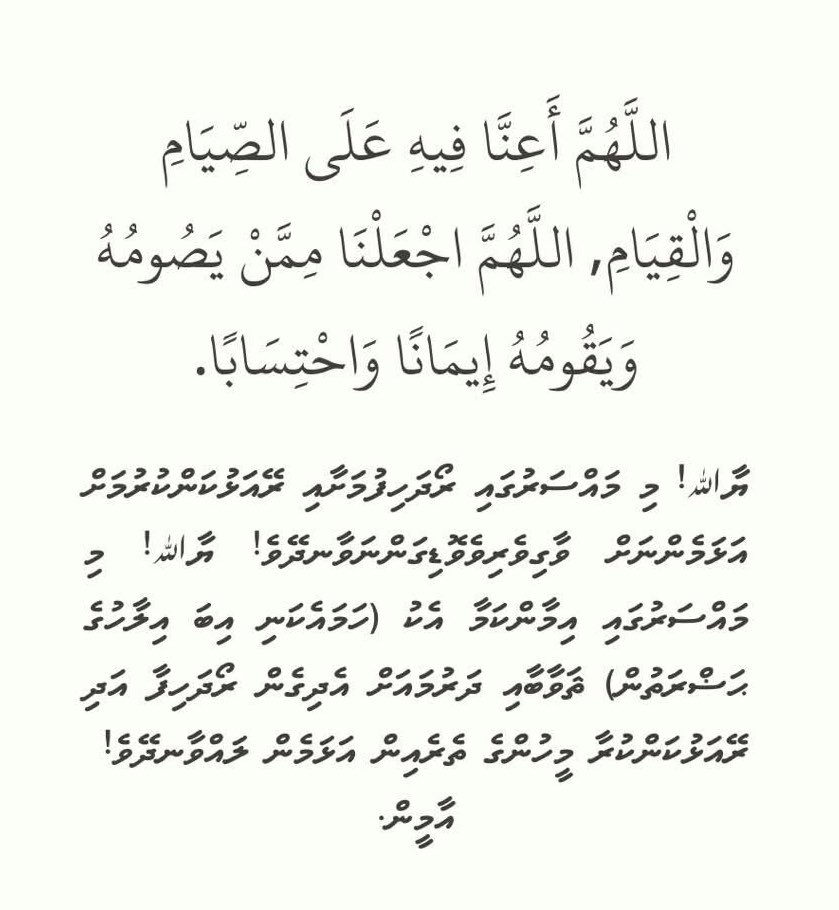 اللَّهُمَّ أَعِنَّا فِيهِ عَلَى الصِّيَامِ
وَالْقِيَامِ, اللَّهُمَّ اجْعَلْنَا مِمَّنْ يَصُومُهُ
وَيَقُومُهُ إِيمَانًا وَاحْتِسَابًا.
ޔާﷲ! މި މައްސަރުގައި ރޯދަހިފުމަށާއި ރޭއަޅުކަންކުރުމަށް
އަޅަމެންނަށް ވާގިވެރިވެވޮޑިގަންނަވާނދޭވެ! ޔާﷲ! މި
މައްސަރުގައި އިމާންކަމާ އެކު (ހަމައެކަނި އިބަ އިލާހުގެ
ޙަޟްރަތުން) ޘަވާބާއި ދަރުމައަށް އެދިގެން ރޯދަހިފާ އަދި
ރޭއަޅުކަންކުރާ މީހުންގެ ތެރެއިން އަޅަމެން ލައްވާނދޭވެ!
އާމީން.